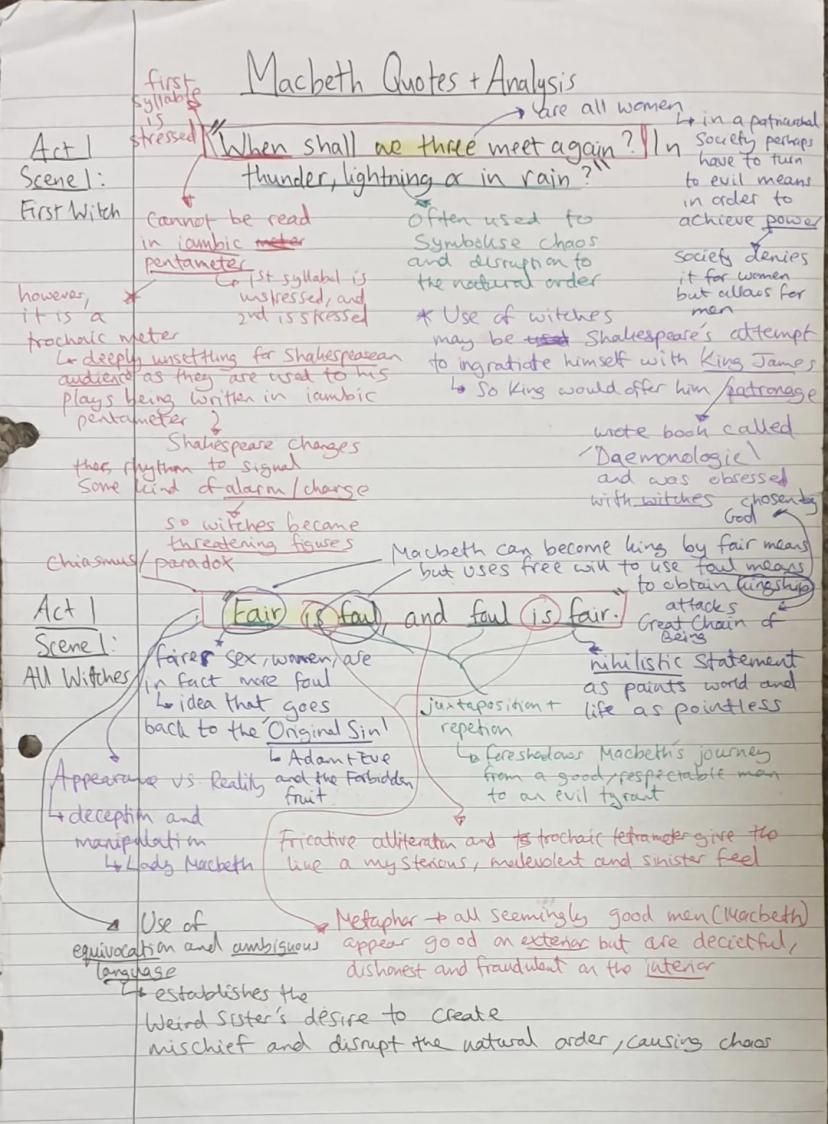 Macbeth Quotes + Analysis
first
syllable
is
stressed
Act 1
Scene 1:
First Witch
"When shall we three meet again? In
thunder, lightning or in rain?"
are all women
in a patriarchal
society perhaps
have to turn
to evil means
in order to
achieve power
society denies
it for women
but allows for
men
Cannot be read
in iambic
pentameter
1st syllabel is
unstressed, and
2nd is stressed
however,
it is a
trochaic meter
deeply unsettling for Shakespearean
audience as they are used to his
plays being written in iambic
pentameter
Shakespeare changes
rhythm to signal
some kind of alarm/change
so witches become
threatening figures
Often used to
Symbolise chaos
and disruption to
the natural order
* Use of witches
may be Shakespeare's attempt
to ingratiate himself with King James
So King would offer him patronage
wrote book called
'Daemonologie'
and was obsessed
with witches
chosen by
God
Macbeth can become king by fair means
but uses free will to use foul means
to obtain kingship
attacks
Great Chain of
Being
Chiasmus/paradox
Act 1
Scene 1:
All Witches
"Fair is foul, and foul is fair."
fairer sex, women, are
in fact more foul
idea that goes
back to the 'Original Sin'
Adam + Eve
and the Forbidden
fruit
juxtaposition +
repetion
foreshadows Macbeth's journey
from a good/respectable man
to an evil tyrant
nihilistic statement
as paints world and
life as pointless
Appearance vs Reality
deception and
manipulation
Lady Macbeth
Fricative alliteration and trochaic tetrameter give the
line a mysterious, malevolent and sinister feel
Metaphor → all seemingly good men (Macbeth)
appear good on exterior but are decietful,
dishonest and fraudulent on the interior
Use of
equivocation and ambiguous
language
establishes the
Weird Sister's desire to create
mischief and disrupt the natural order, causing chaos